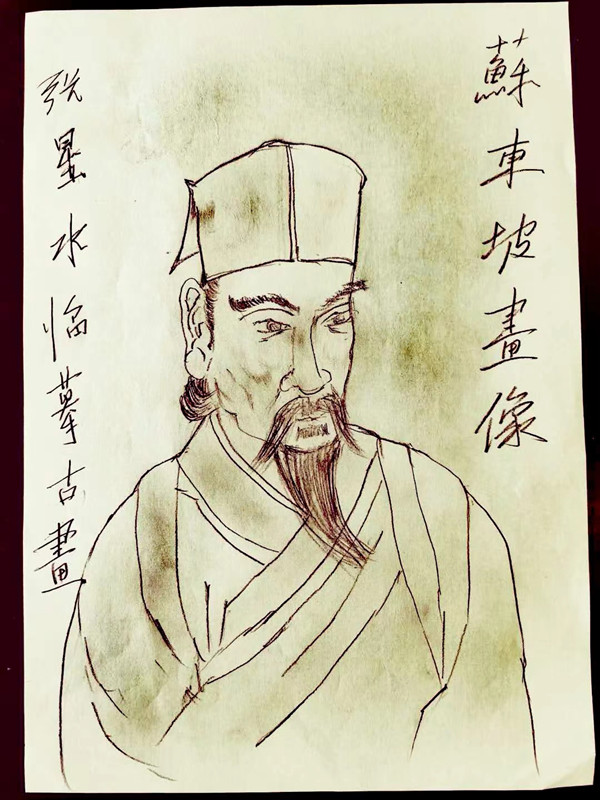 蘇東坡畫像
张墨水临摹古畫